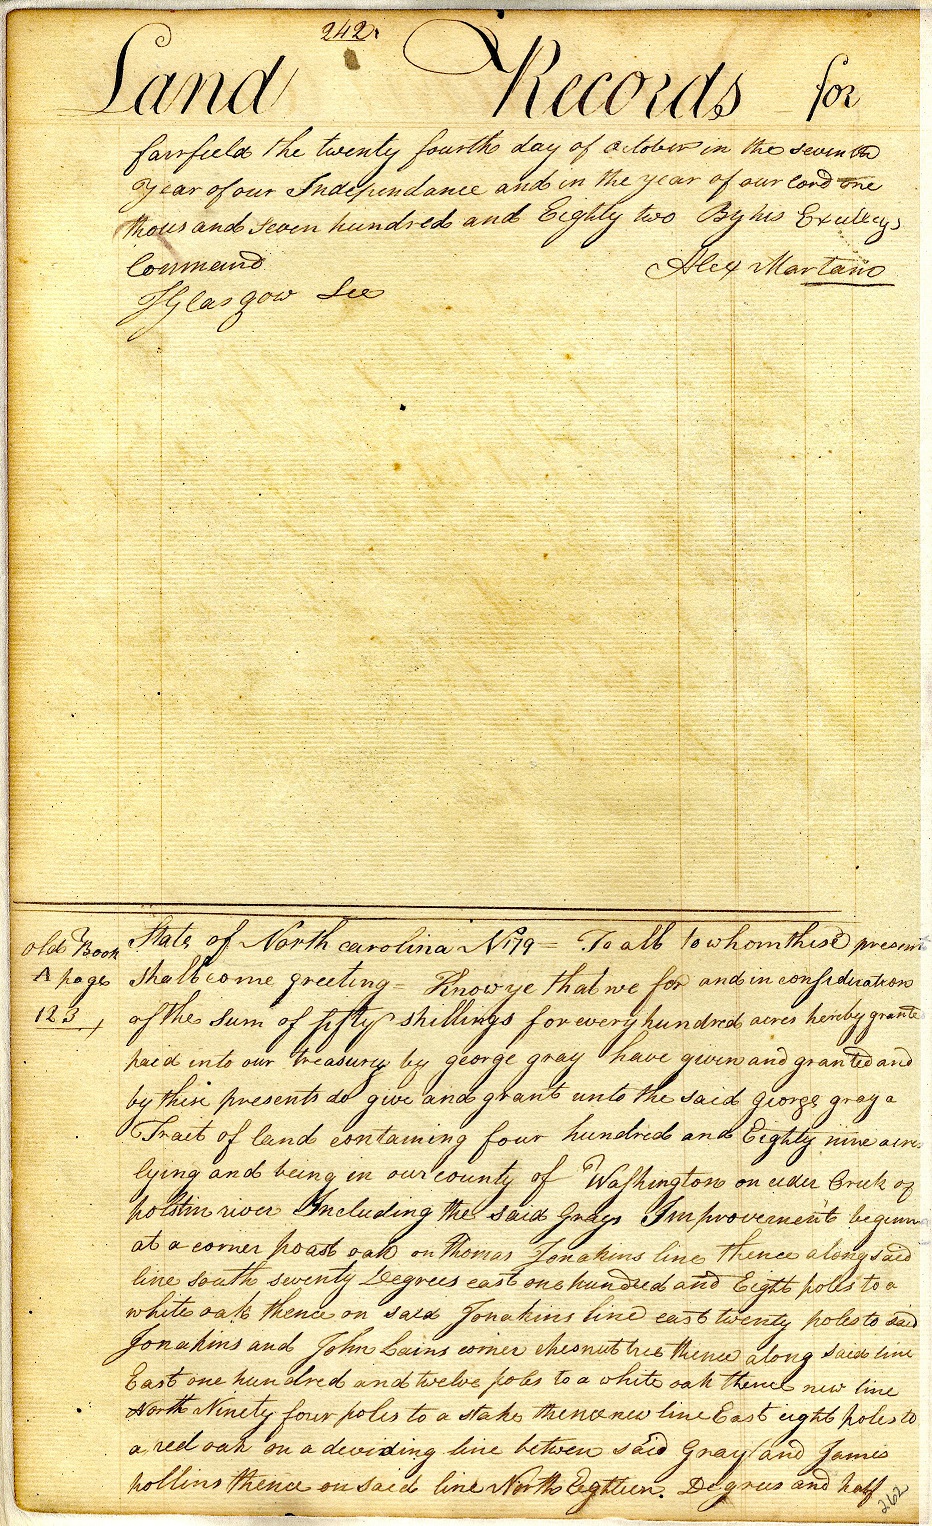 242.
Land Records for
fairfield the twenty fourth day of October in the seventh
year of our Independance and in the year of our lord one
thousand seven hundred and Eighty two By his Excellcys
Command Alex Martain
J Glasgow Sec
Old Book
A pages
123
State of North carolina No 179 = To all to whom these present
shall come greeting = Know ye that we for and in consideration
of the sum of fifty shillings for every hundred acres hereby grante
paid into our treasury by george gray have given and granted and
by these presents do give and grant unto the said george gray a
Trait of land containing four hundred and Eighty nine acre
lying and being in our county of Washington on ceder Creek of
holstin river Including the said Grays Improvement beginn
at a corner poast oak on Thomas Jonakins line thence along said
line south seventy Degrees east one hundred and Eight poles to a
white oak thence on said Jonakins line east twenty poles to said
Jonakins and John Cains corner chesnut tree thence along said line
East one hundred and twelve poles to a white oak thence new line
North Ninety four poles to a stake thence new line East eight poles to
a red oak on a deviding line betwen said Gray and James
hollins thence on said line North Eighteen. Degrees and half
262